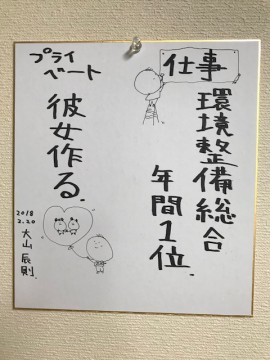 仕事
環境整備総合
年間1位.
プライ
ベート
彼女作る.
2018
2.20
大山辰則.